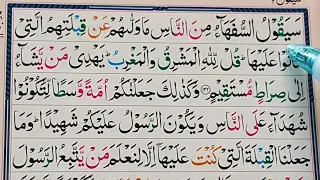 سَيَقُوۡلُ السُّفَهَآءُ مِنَ النَّاسِ مَا وَلّٰٮهُمۡ عَنۡ قِبۡلَتِهِمُ الَّتِىۡ
كَانُوۡا عَلَيۡهَا ؕ قُلۡ لِّلّٰهِ الۡمَشۡرِقُ وَالۡمَغۡرِبُ ؕ يَهۡدِىۡ مَنۡ يَّشَآءُ
اِلٰى صِرَاطٍ مُّسۡتَقِيۡمٍ ﴿۱۴۲﴾ وَكَذٰلِكَ جَعَلۡنٰكُمۡ اُمَّةً وَّسَطًا لِّتَکُوۡنُوۡا
شُهَدَآءَ عَلَى النَّاسِ وَيَكُوۡنَ الرَّسُوۡلُ عَلَيۡكُمۡ شَهِيۡدًا ؕ وَمَا
جَعَلۡنَا الۡقِبۡلَةَ الَّتِىۡ كُنۡتَ عَلَيۡهَآ اِلَّا لِنَعۡلَمَ مَنۡ يَّتَّبِعُ الرَّسُوۡلَ